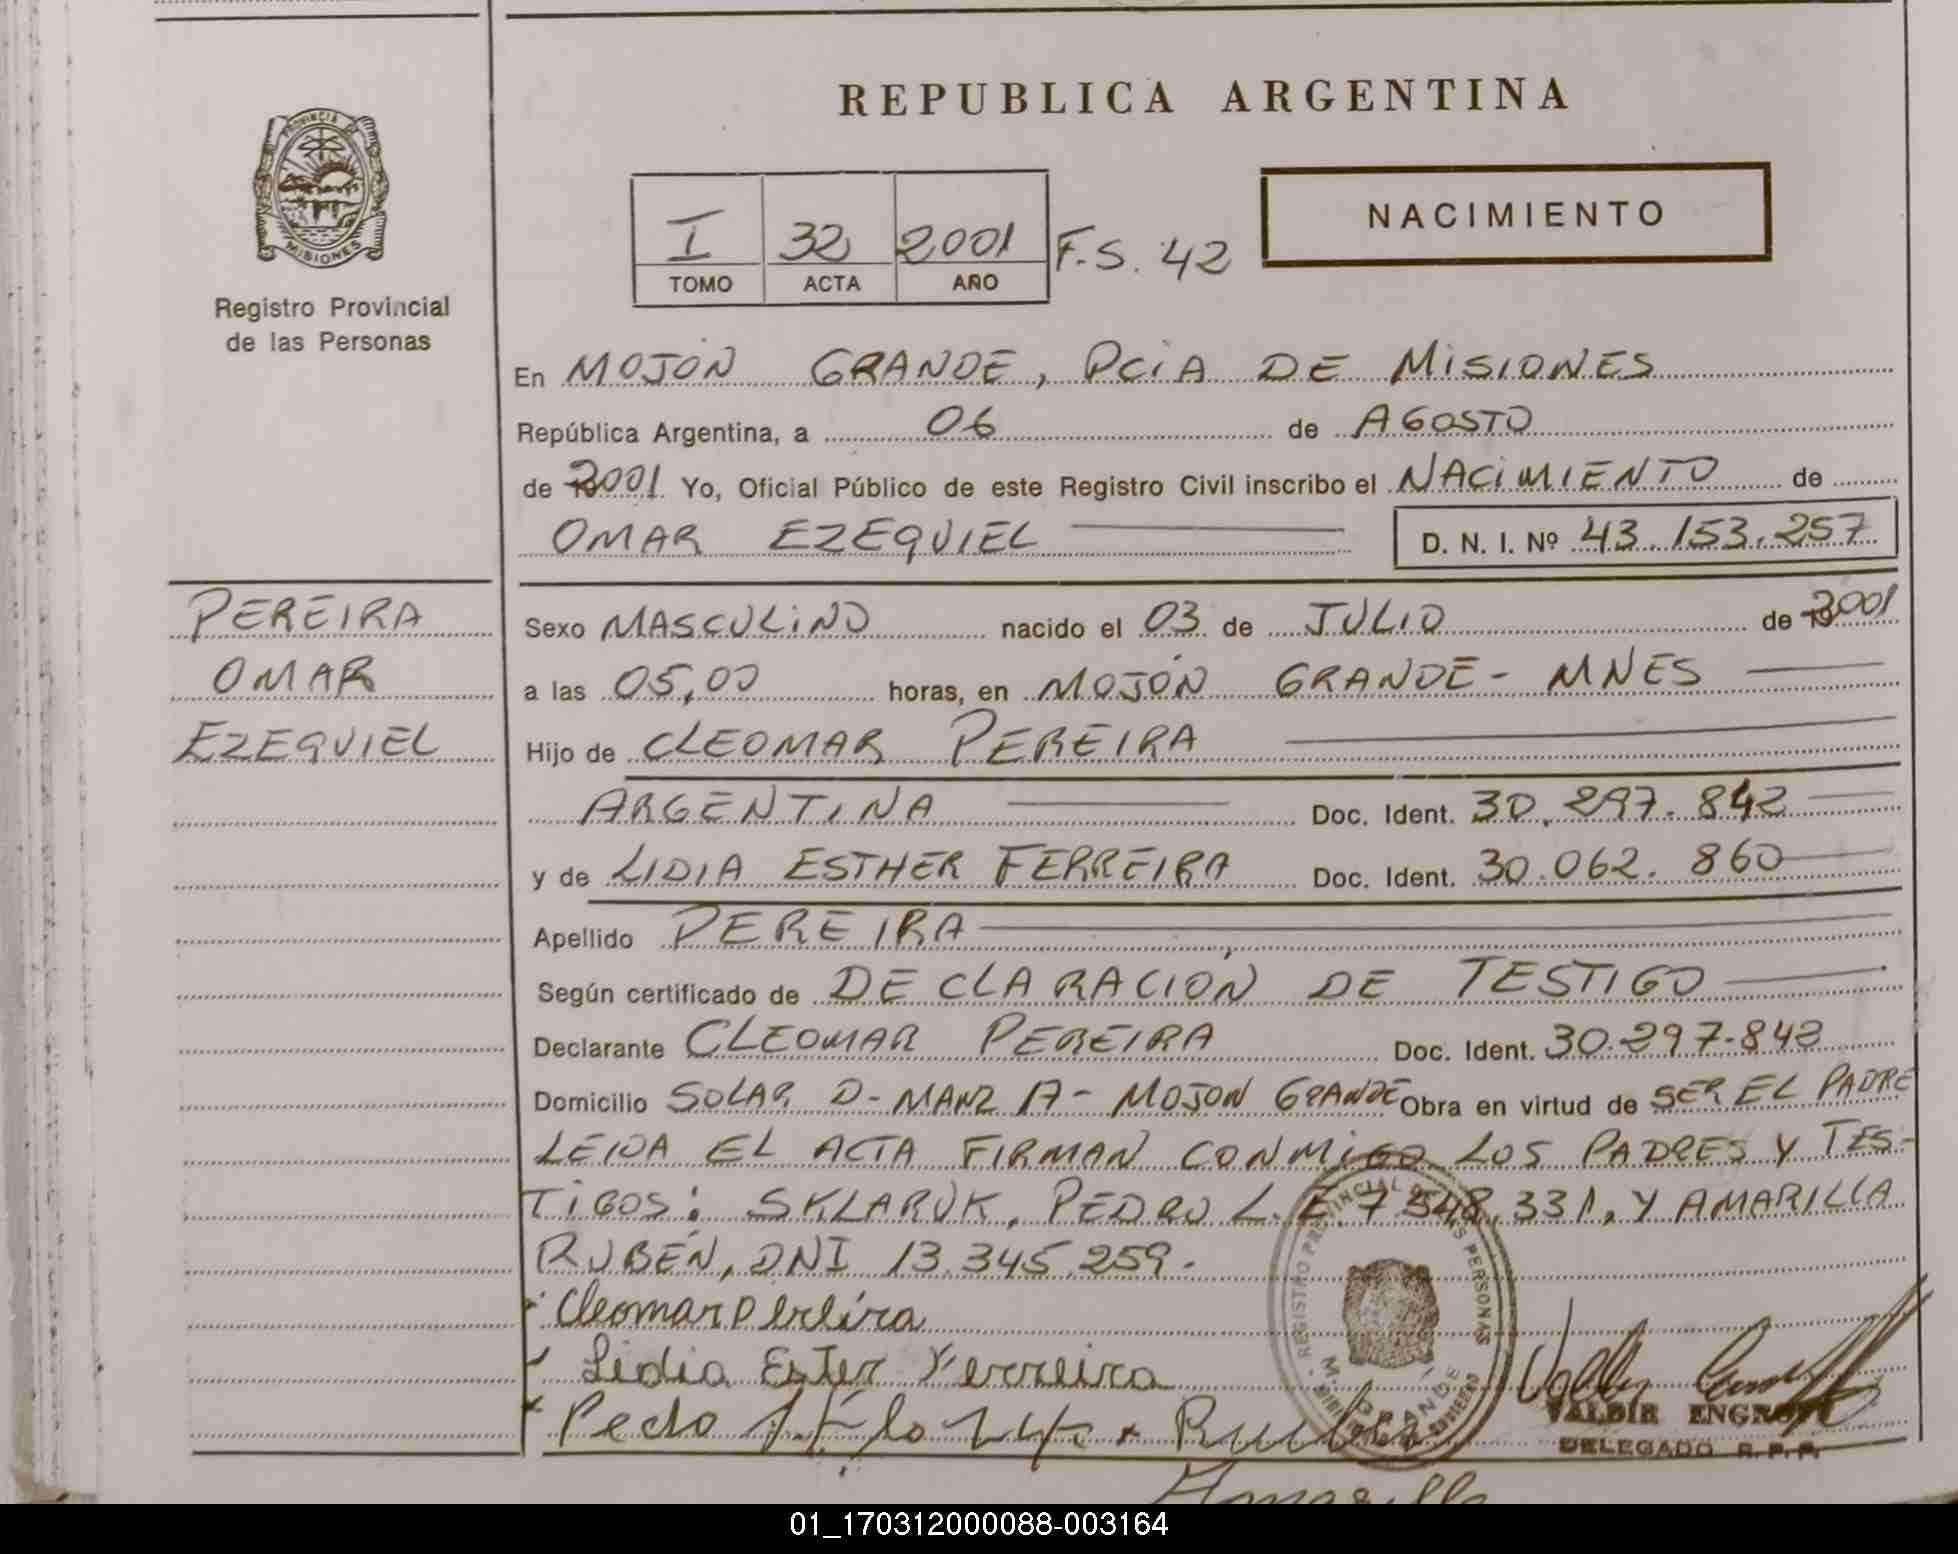 REPUBLICA ARGENTINA
PROVINCIA DE
MISIONES
Registro Provincial
de las Personas
I 32 2001 F.S. 42
TOMO ACTA AÑO
NACIMIENTO
En MOJÓN GRANDE, PCIA DE MISIONES
República Argentina, a 06 de AGOSTO
de 2001 Yo, Oficial Público de este Registro Civil inscribo el NACIMIENTO de
OMAR EZEQUIEL D. N. I. Nº 43.153.257
PEREIRA
OMAR
EZEQUIEL
Sexo MASCULINO nacido el 03 de JULIO de 2001
a las 05,00 horas, en MOJÓN GRANDE - MNES
Hijo de CLEOMAR PEREIRA
ARGENTINA Doc. Ident. 30.297.842
y de LIDIA ESTHER FERREIRA Doc. Ident. 30.062.860
Apellido PEREIRA
Según certificado de DECLARACIÓN DE TESTIGO
Declarante CLEOMAR PEREIRA Doc. Ident. 30.297.842
Domicilio SOLAR D - MANZ A - MOJON GRANDE Obra en virtud de SER EL PADRE
LEIDA EL ACTA FIRMAN CONMIGO LOS PADRES Y TES-
TIGOS: SKLARUK, PEDRO L.E. 7 548.331, Y AMARILLA
RUBÉN, DNI 13.345.259.
Cleomar Pereira
Lidia Ester Ferreira
Pedro
REGISTRO PROVINCIAL DE LAS PERSONAS
VALDIR
DELEGADO R.P.P.
01_170312000088-003164